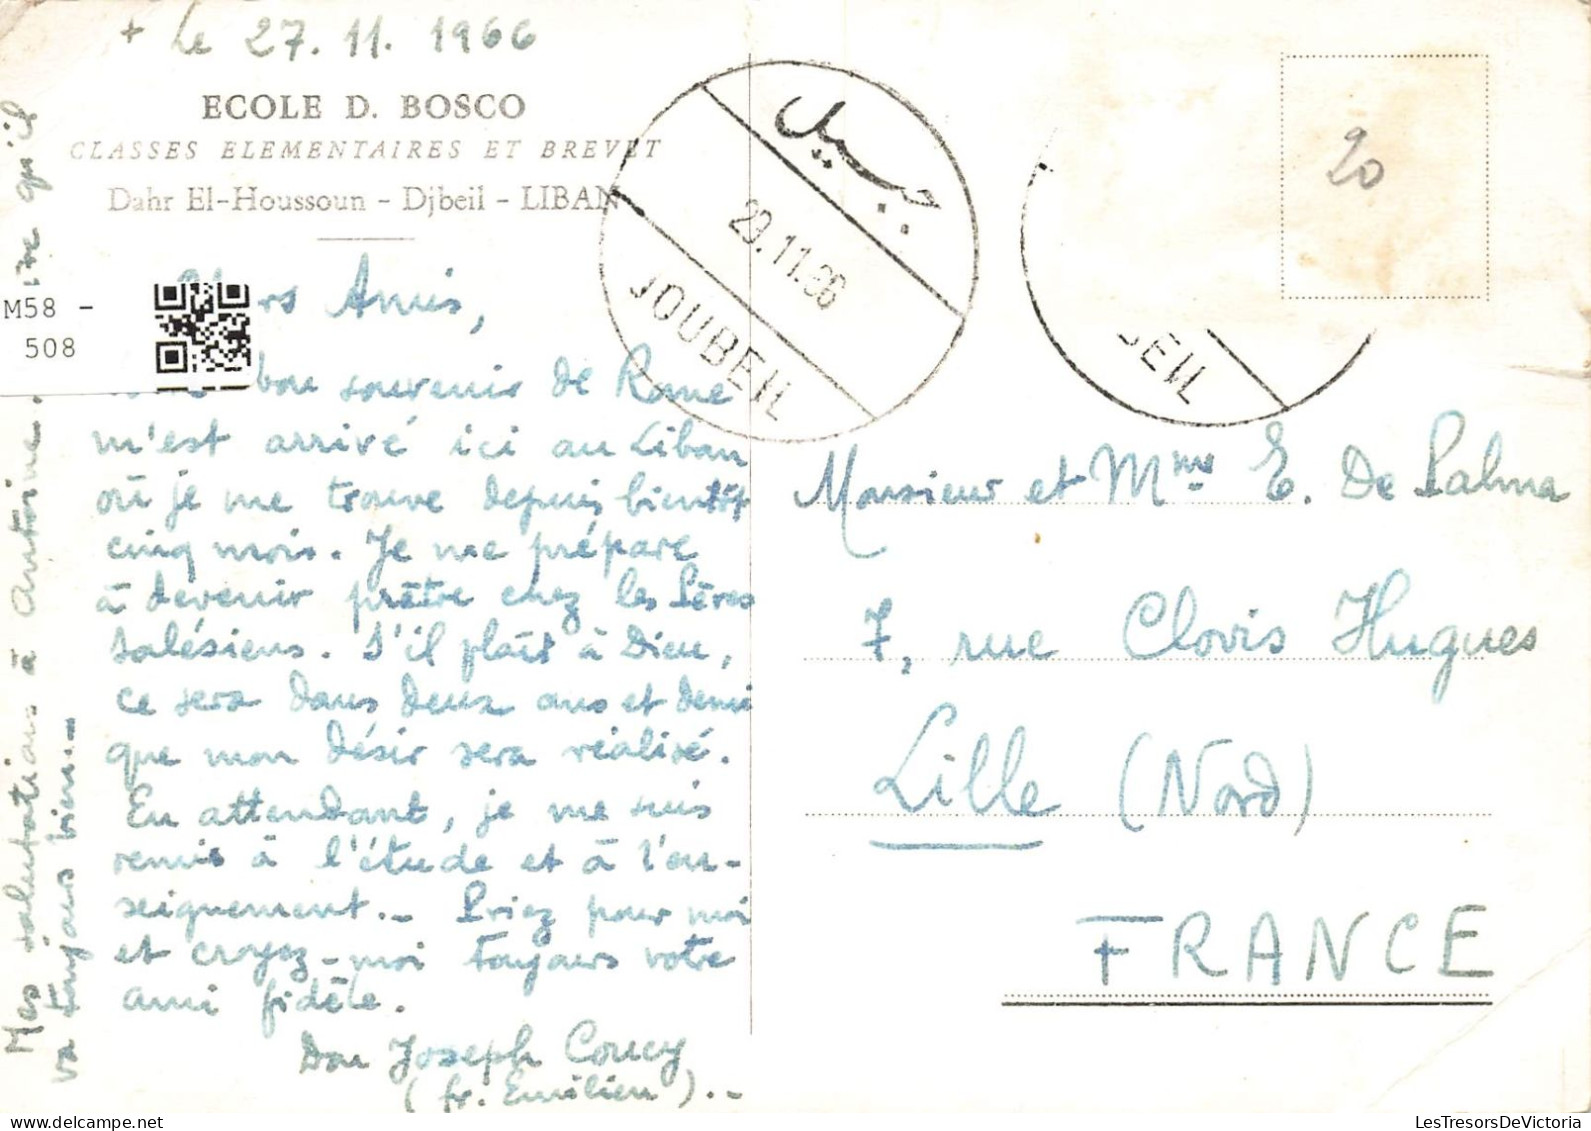 + Le 27.11.1966
ECOLE D. BOSCO
CLASSES ELEMENTAIRES ET BREVET
Dahr El-Houssoun - Djbeil - LIBAN
Amis,
bon souvenir de Rome
m'est arrivé ici au Liban
où je me trouve depuis bientôt
cinq mois. Je me prépare
à devenir prêtre chez les Pères
Salésiens. S'il plaît à Dieu,
ce sera dans deux ans et demi
que mon désir sera réalisé.
En attendant, je me suis
remis à l'étude et à l'en-
seignement. - Priez pour moi
et croyez-moi toujours votre
ami fidèle.
Don Joseph Coucy
(fr. Emilien). -
Mes salutations à Antoine.
qu'il
va toujours bien. -
M58 -
508
جبيل
29.11.66
JOUBEIL
BEIL
20
Monsieur et Mme E. De Palma
7, rue Clovis Hugues
Lille (Nord)
FRANCE
LesTresorsDeVictoria